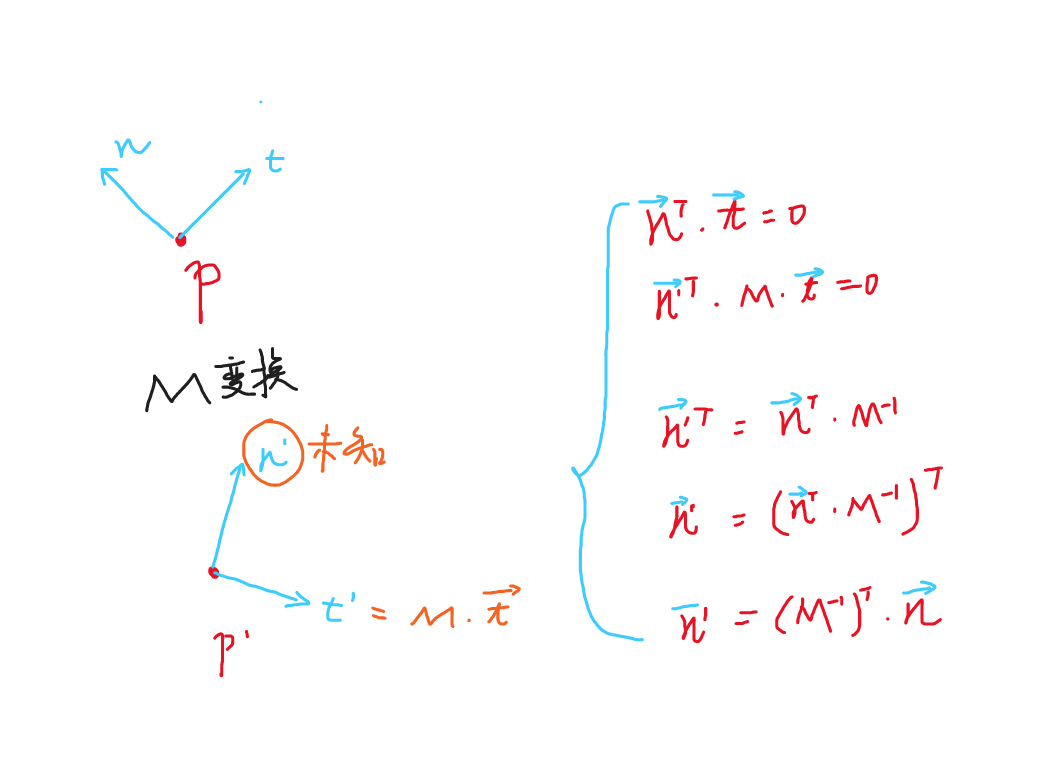 n
t
p
M变换
n' 未知
t' = M · t⃗
p'
n⃗ᵀ · t⃗ = 0
n⃗'ᵀ · M · t⃗ = 0
n⃗'ᵀ = n⃗ᵀ · M⁻¹
n⃗' = (n⃗ᵀ · M⁻¹)ᵀ
n̅' = (M⁻¹)ᵀ · n⃗